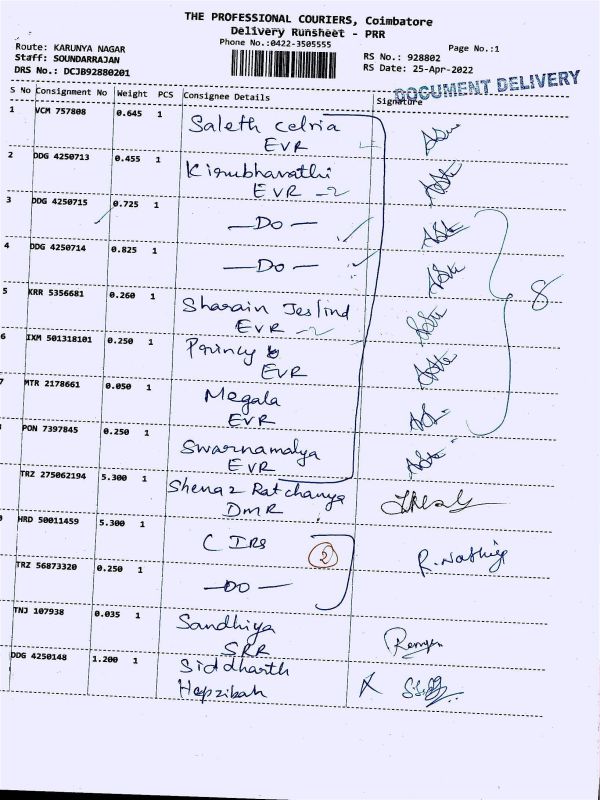 THE PROFESSIONAL COURIERS, Coimbatore
Delivery Runsheet - PRR
Phone No.:0422-3505555
Page No.:1
Route: KARUNYA NAGAR
Staff: SOUNDARRAJAN
DRS No.: DCJB92880201
RS No.: 928802
RS Date: 25-Apr-2022
DOCUMENT DELIVERY
S No Consignment No Weight PCS Consignee Details Signature
1 VCM 757808 0.645 1 Saleth Celria
EVR
2 DDG 4250713 0.455 1 Kirubharathi
EVR -2
3 DDG 4250715 0.725 1 -Do-
4 DDG 4250714 0.825 1 -Do-
8
5 KRR 5356681 0.260 1 Sharain Jeslind
EVR -2
6 IXM 501318101 0.250 1 Princy
EVR
7 MTR 2178661 0.050 1 Megala
EVR
PON 7397845 0.250 1 Swarnamalya
EVR
TRZ 275062194 5.300 1 Shenaz Ratchanya
DMR
HRD 50011459 5.300 1 C IRS 2 R. Nathiya
TRZ 56873320 0.250 1 -DO-
TNJ 107938 0.035 1 Sandhiya
SRR
DDG 4250148 1.200 1 Siddharth
Hepzibah